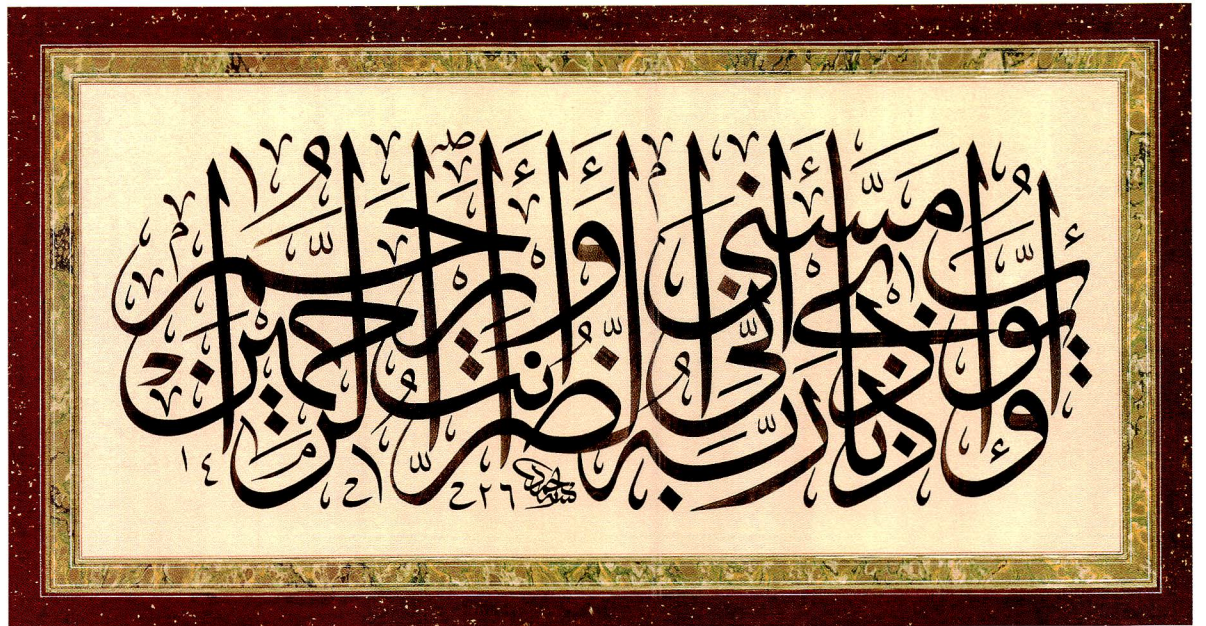 وَأَيُّوبَ إِذْ نَادَىٰ رَبَّهُ أَنِّي مَسَّنِيَ الضُّرُّ وَأَنتَ أَرْحَمُ الرَّاحِمِينَ
١٤٢٦